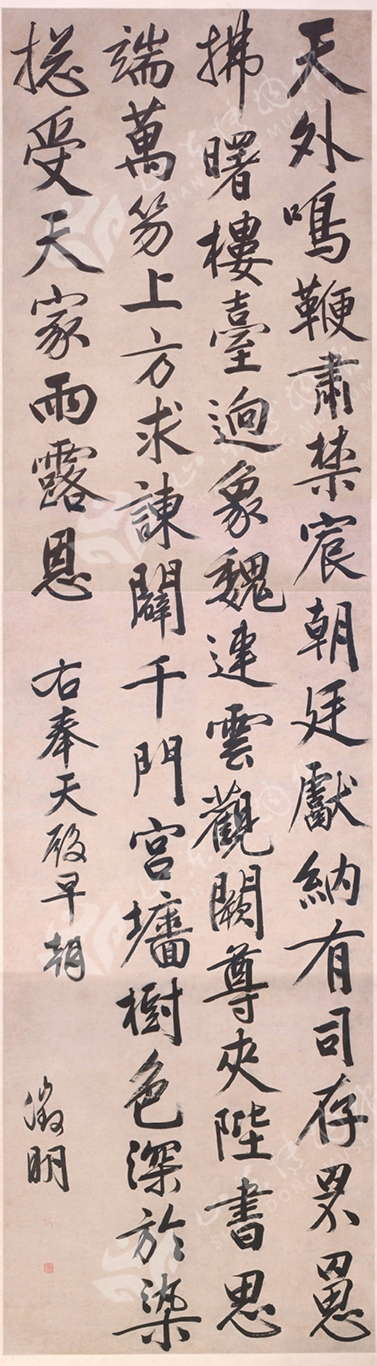 天外鳴鞭肅禁宸朝廷獻納有司存罘罳
拂曙樓臺迥象魏連雲觀闕尊夾陛書思
端萬笏上方求諫闢千門宮墻樹色深於染
捴受天家雨露恩
右奉天殿早朝
徵明